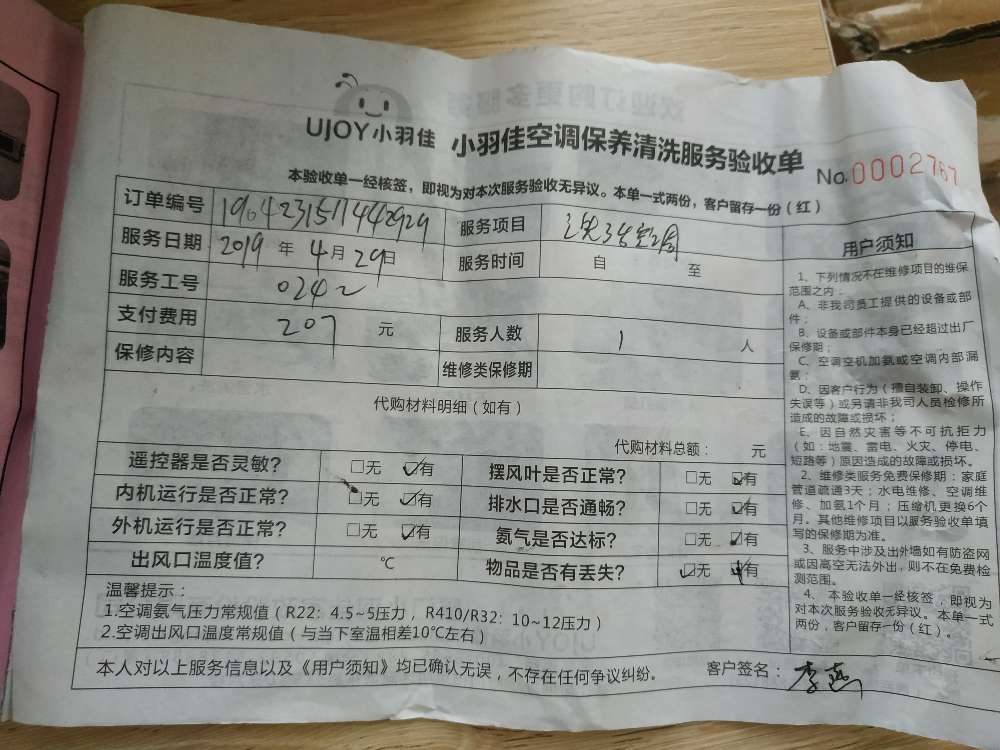 UJOY小羽佳 小羽佳空调保养清洗服务验收单 No.0002767
本验收单一经核签，即视为对本次服务验收无异议。本单一式两份，客户留存一份（红）
订单编号 1904231511442929 服务项目
服务日期 2019 年 4 月 29 日 服务时间 自 至
服务工号 0242
支付费用 207 元 服务人数 1 人
保修内容 维修类保修期
代购材料明细（如有）
代购材料总额： 元
遥控器是否灵敏？ □无 ☑有 摆风叶是否正常？ □无 ☑有
内机运行是否正常？ □无 ☑有 排水口是否通畅？ □无 ☑有
外机运行是否正常？ □无 ☑有 氨气是否达标？ □无 ☑有
出风口温度值？ ℃ 物品是否有丢失？ ☑无 有
温馨提示：
1.空调氨气压力常规值（R22：4.5~5压力，R410/R32：10~12压力）
2.空调出风口温度常规值（与当下室温相差10℃左右）
本人对以上服务信息以及《用户须知》均已确认无误，不存在任何争议纠纷。 客户签名：李燕
用户须知
1、下列情况不在维修项目的维保
范围之内：
A、非我司员工提供的设备或部
件；
B、设备或部件本身已经超过出厂
保修期；
C、空调空机加氨或空调内部漏
氨；
D、因客户行为（擅自装卸、操作
失误等）或另请非我司人员检修所
造成的故障或损坏；
E、因自然灾害等不可抗拒力
（如:地震、雷电、火灾、停电、
短路等）原因造成的故障或损坏。
2、维修类服务免费保修期：家庭
管道疏通3天；水电维修、空调维
修、加氨1个月；压缩机更换6个
月。其他维修项目以服务验收单填
写的保修期为准。
3、服务中涉及出外墙如有防盗网
或因高空无法外出，则不在免费检
测范围。
4、本验收单一经核签，即视为
对本次服务验收无异议。本单一式
两份，客户留存一份（红）。